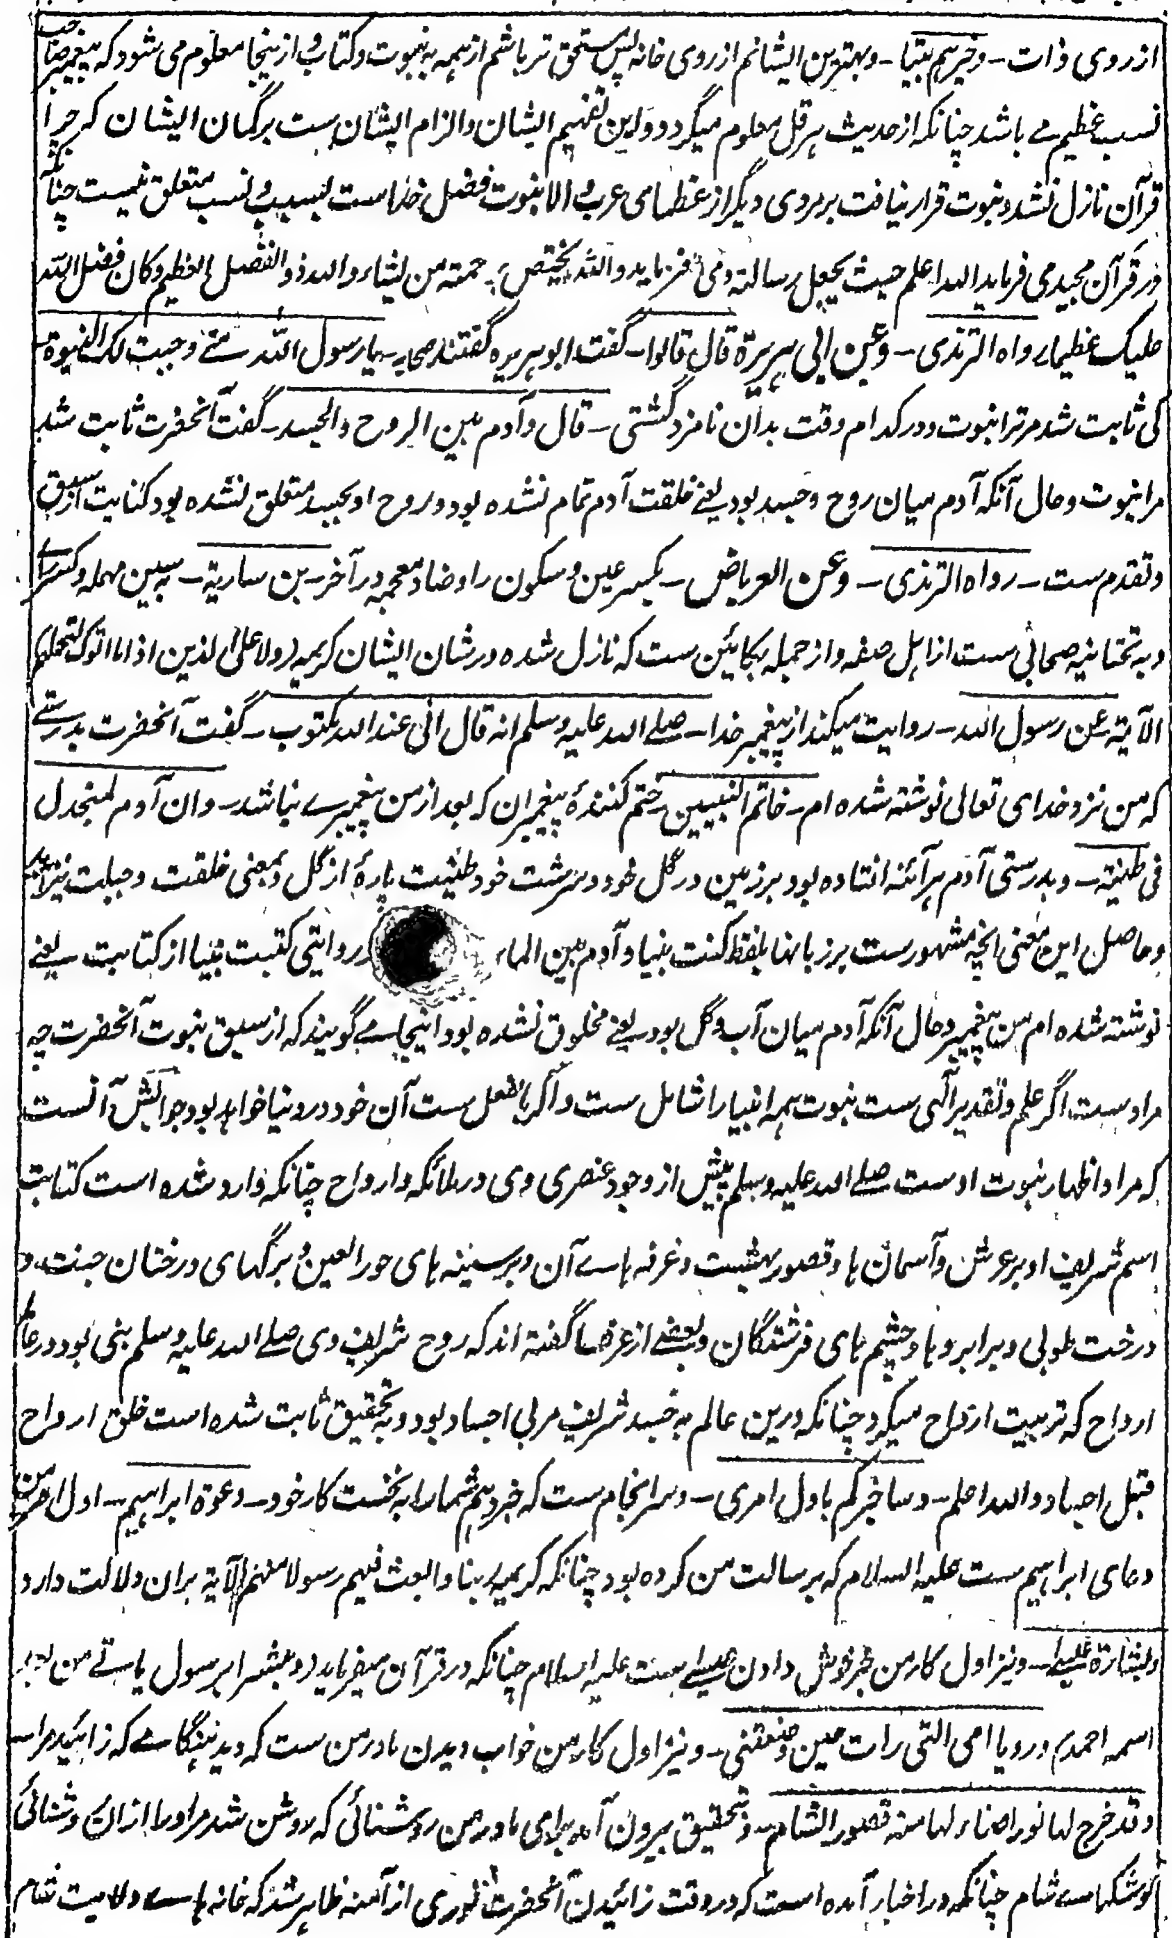 از روی ذات - وخیرهم بیتا - وبهترین ایشانم از روی خانه پس مستحق تر باشم از همه به نبوت وکتاب و ازینجا معلوم می شود که پیغمبر صاحب
نسب عظیم مے باشد چنانکه از حدیث هرقل معلوم میگردد واین تفهیم ایشان والزام ایشان ست برگمان ایشان که چرا
قرآن نازل نشد ونبوت قرار نیافت بر مردی دیگر از عظمای عرب والا نبوت فضل خداست بسبب ونسب متعلق نیست چنانکه
در قرآن مجید می فرماید الله اعلم حیث یجعل رسالته ومی فرماید والله یختص برحمته من یشاء والله ذو الفضل العظیم وکان فضل الله
علیک عظیما رواه الترمذی - وعن ابی هریرة قال قالوا - گفت ابوهریره گفتند صحابه - یا رسول الله متے وجبت لک النبوة -
کی ثابت شد مر ترا نبوت ودر کدام وقت بدان نامزد گشتی - قال وآدم بین الروح والجسد - گفت آنحضرت ثابت شد
مرا نبوت وحال آنکه آدم میان روح وجسد بود یعنے خلقت آدم تمام نشده بود وروح او بجسد متعلق نشده بود کنایت از سبق
وتقدم ست - رواه الترمذی - وعن العرباض - بکسر عین وسکون را وضاد معجمه در آخر - بن ساریة - به سین مهمله وکسر راے
وبه تحتانیه صحابی ست از اهل صفه واز جمله بکائین ست که نازل شده در شان ایشان کریمه ولا علی الذین اذا ما اتوک لتحملهم
الآیة عن رسول الله - روایت میکند از پیغمبر خدا - صلے الله علیه وسلم انه قال انی عند الله مکتوب - گفت آنحضرت بدرستے
که من نزد خدای تعالی نوشته شده ام - خاتم النبیین - ختم کنندهٔ پیغمبران که بعد از من پیغمبرے نباشد - وان آدم لمنجدل
فی طینته - وبدرستی آدم هر آئنه افتاده بود بر زمین در گل خود وسرشت خود طینت پارهٔ از گل وبمعنی خلقت وجبلت نیز آمده
وحاصل این معنی آنچه مشهورست بر زبانها بلفظ کنت نبیا وآدم بین الماء در روایتی کتبت نبیا از کتابت یعنے
نوشته شده ام من پیغمبر وحال آنکه آدم میان آب وگل بود یعنے مخلوق نشده بود اینجا مے گویند که از سبق نبوت آنحضرت چه
مرادست اگر علم وتقدیر الٰهی ست نبوت همه انبیا را شامل ست واگر بالفعل ست آن خود در دنیا خواهد بود جوابش آنست
که مراد اظهار نبوت اوست صلے الله علیه وسلم پیش از وجود عنصری وی در ملائکه وارواح چنانکه وارد شده است کتابت
اسم شریف او بر عرش وآسمان ها وقصور بهشت وغرفه هاے آن وبر سینه های حور العین وبرگهای درختان جنت و
درخت طوبی وبر ابروها وچشم های فرشتگان وبعضے از عرفا گفته اند که روح شریف وی صلے الله علیه وسلم نبی بود در عالم
ارواح که تربیت ارواح میکرد چنانکه درین عالم به جسد شریف مربی اجساد بود وبه تحقیق ثابت شده است خلق ارواح
قبل اجساد والله اعلم - وساخبرکم باول امری - وسرانجام ست که خبر دهم شما را به نخست کار خود - دعوة ابراهیم - اول امر من
دعای ابراهیم ست علیه السلام که برسالت من کرده بود چنانکه کریمه ربنا وابعث فیهم رسولا منهم الآیة بران دلالت دارد
وبشارة عیسے - ونیز اول کار من خبر خوش دادن عیسے ست علیه السلام چنانکه در قرآن میفرماید ومبشرا برسول یاتے من بعدی
اسمه احمد - ورویا امی التی رات حین وضعتنی - ونیز اول کار من خواب دیدن مادر من ست که دید هنگامے که زائید مرا
وقد خرج لها نور اضاء لها منه قصور الشام - وبتحقیق بیرون آمد برای مادر من روشنائی که روشن شد مر او را ازان روشنائی
کوشکهاے شام چنانکه در اخبار آمده است که در وقت زائیدن آنحضرت نوری از آمنه ظاهر شد که خانه هاے ولایت شام